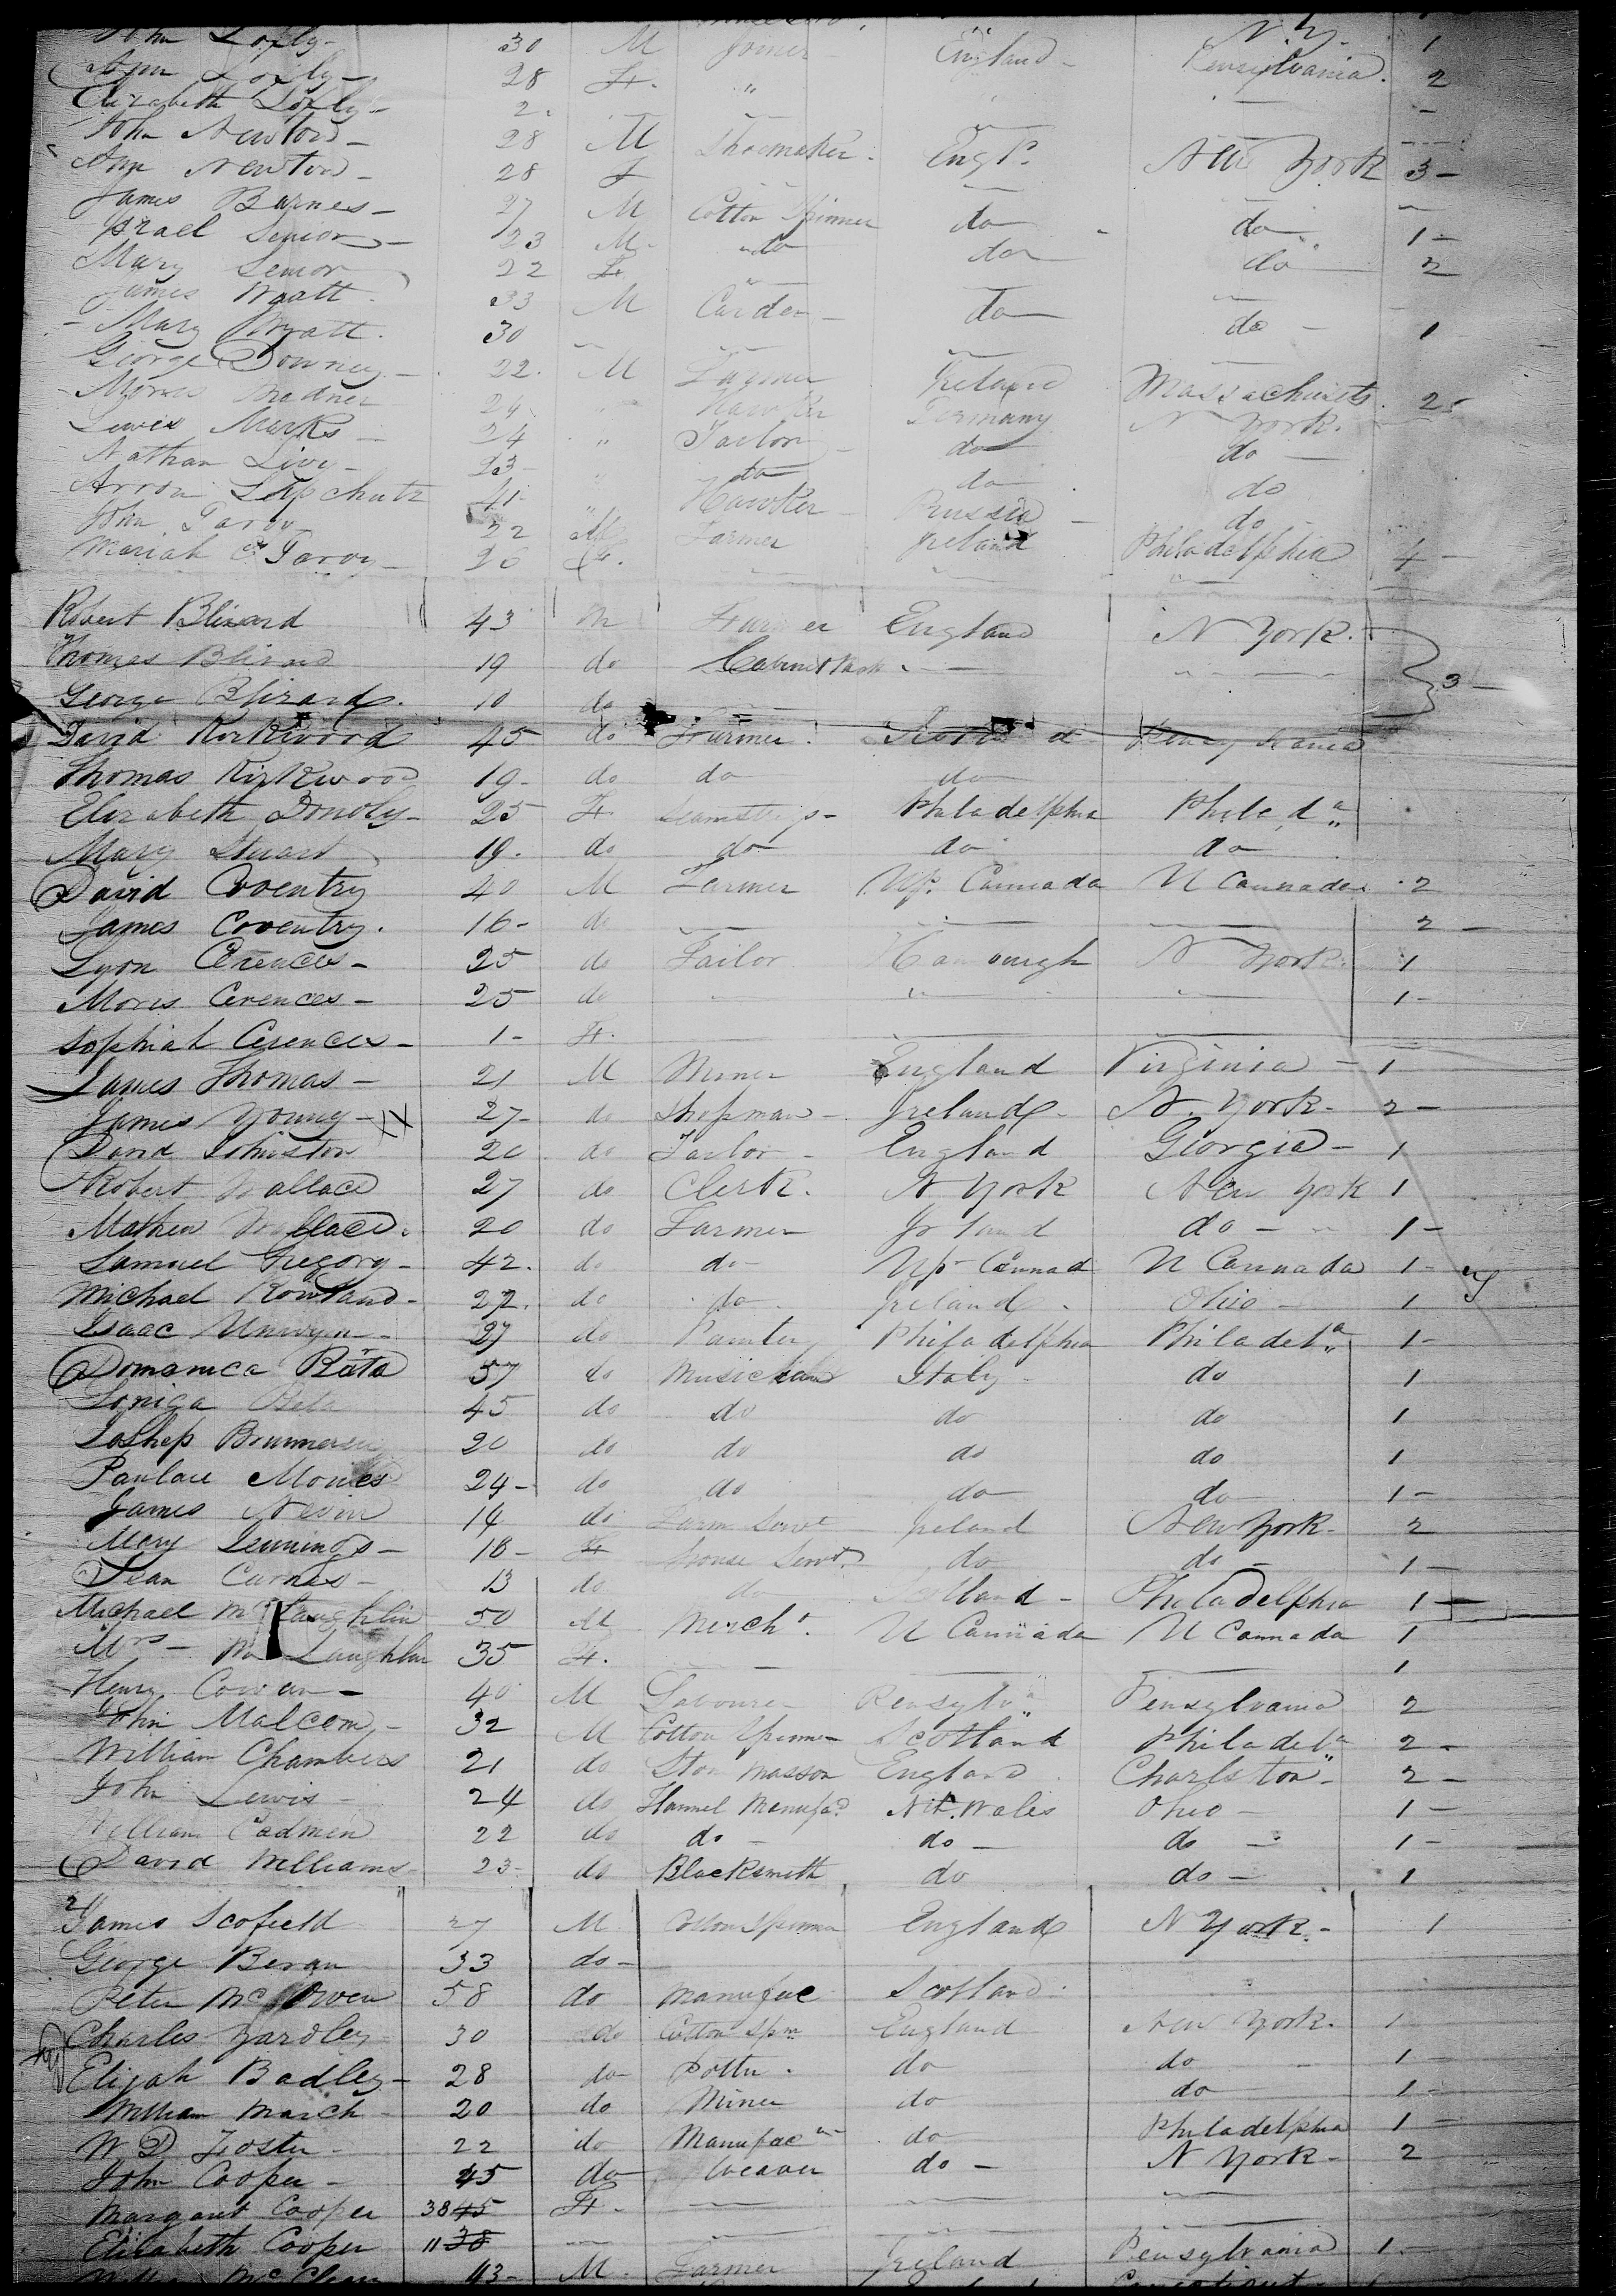 John Loxly - 30 M Joiner England - N. Y. 1
Ann Loxly - 28 F. " Pensylvania. 2
Elizabeth Loxly - 2.
John Newton - 28 M Shoemaker. Engd.
Ann Newton - 28 F New York 3 -
James Barnes - 27 M Cotton Spinner do do
Israel Senior - 23 M. do do 1 -
Mary Senior 22 F. do 2
James Wyatt. 33 M Carder - do
Mary Wyatt. 30 do - 1
George Downey - 22. M Farmer Ireland Massachusets. 2
24 " Hawker Germany N York.
Lewis Marks - 24 " Tailor do do
Nathan Livy - 23 - " do do do
Arron Lipschutz 41 " Hawker Russia do
John 22 M Farmer Ireland Philadelphia 4 -
Mariah 26 F.
Robert Blizard 43 M Farmer England N York. 3 -
Thomas Blizard 19 do
George Blizard. 10 do
David Kirkwood 45 do Farmer.
Thomas Kirkwood 19 - do do do
Elizabeth Donoly - 25 F Seamstress - Philadelphia Philada
Mary Stuart 19. do do do do
David Coventry 40 M Farmer Up. Cannada U Cannada 2
James Coventry. 16 - do 2 -
Lyon Cerences - 25 do Tailor Hambough N York. 1
Mores Cerences - 25 do 1 -
Sophiah Cerences - 1 - F.
James Thomas - 21 M Miner England Virginia - 1
James Young - XX 27 - do Shopman - Ireland - N. York - 2 -
David Johnston 20 do Tailor - England Georgia - 1
Robert Wallace 27 do Clerk. N York New York 1
Mathew Wallace. 20 do Farmer Ireland do - 1 -
Samuel Gregory - 42. do do - Up Cannad U Cannada 1 -
Michael Rowland - 22. do do Ireland. Ohio - 1
Isaac Unwyn - 27 do Painter Philadelphia Philadela 1 -
Domanica Rata 57 do Musician Italy - do 1
Loniga 45 do do do do 1
20 do do do do 1
Paulace Mones 24 - do do do do 1 -
James Nevin 14 do Farm Servt Ireland New York - 2
Mary Jennings - 18 - F House Servt. do do - 1 -
Jean Carnes - 13 do do Scotland - Philadelphia 1 -
Michael McLaughlin 50 M Mercht. U Cannada U Cannada 1
Mrs - McLaughlin 35 F. 1
Henry Cowan - 40 M Labourer Pensylva Pensylvania 2
John Malcom - 32 M Cotton Spinner Scotland Philadela 2 -
William Chambers 21 do Ston Masson England Charlston - 2 -
John Lewis - 24 do Flannel Manufar Nth. Wales Ohio - 1 -
William Cadmen 22 do do - do - do - 1 -
David Williams - 23 - do Blacksmith do do - 1
James Scofield 27 M Cotton Spinner England N York. - 1
George Bevan 33 do -
Peter McOwen 58 do Manufac Scotland.
Charles Yardley 30 do Cotton Spin England New York. 1
Elijah Badley - 28 do Potter. do do 1 -
William March 20 do Miner do do 1 -
W D Foster - 22 do Manufac do Philadelphia 1 -
John Cooper - 45 do Weaver do - N York - 2
Margaret Cooper 38 45 F.
Elisabeth Cooper 11 38
43 - M. Farmer Ireland Pensylvania 1 -